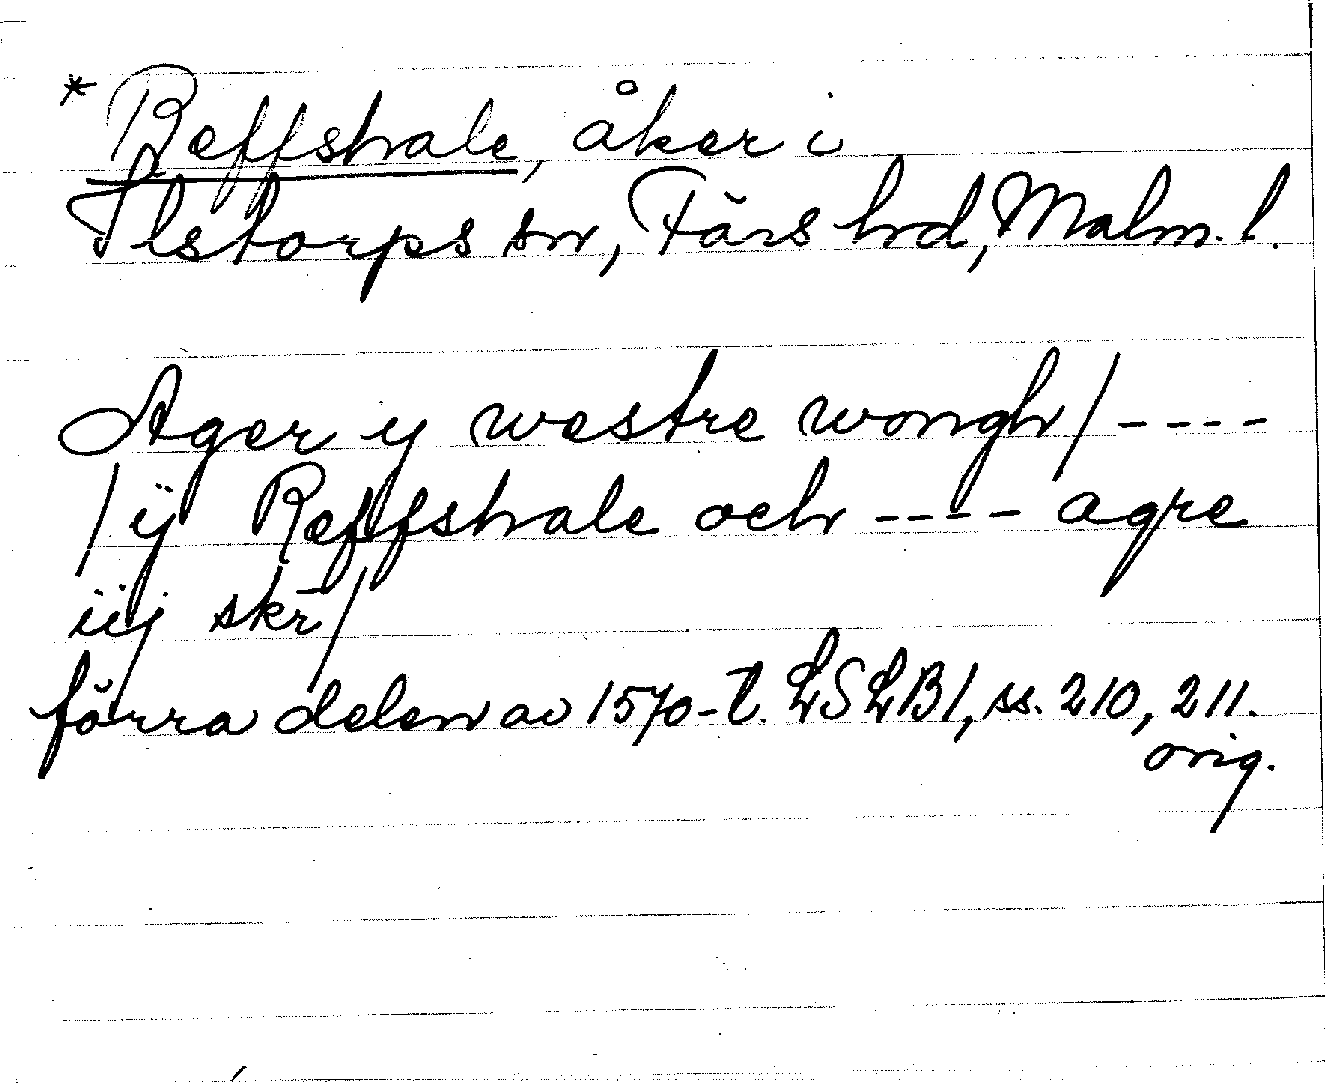 * Reffshale, åker i
Ilstorps sn, Färs hd, Malm. l.
Ager y westre wongh / ----
/ ij Reffshale och ---- agre
iij skr̄ /
förra delen av 1570-t. LSLB1, ss. 210, 211.
orig.